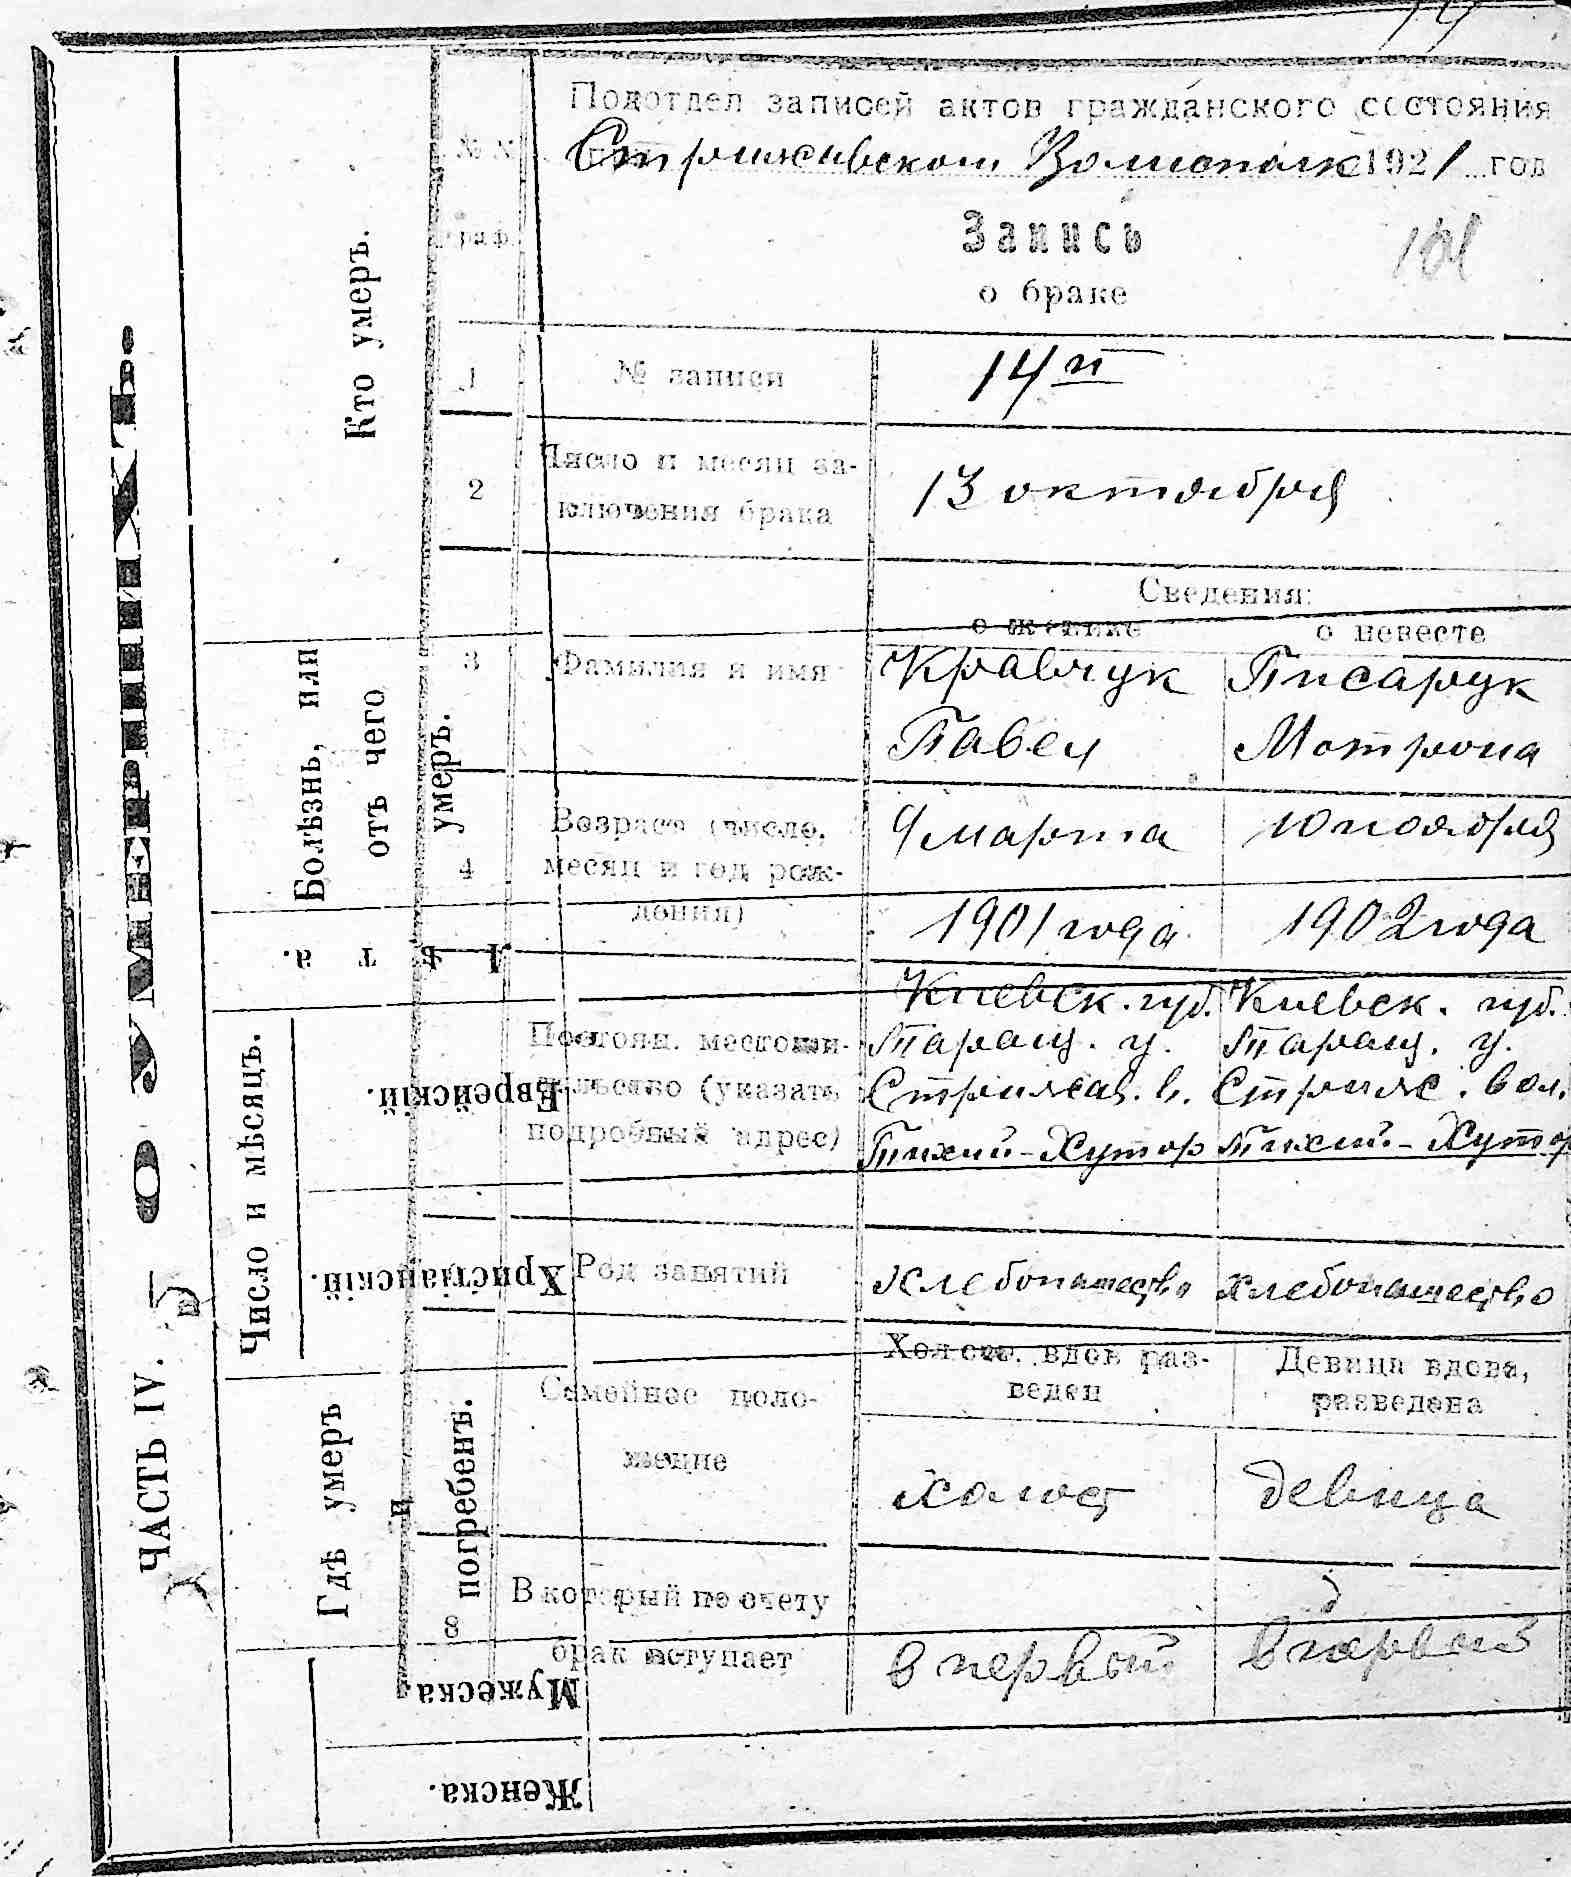 Подотдел записей актов гражданского состояния
Стрижавском Волисполк 1921 год
№ №
граф.
Запись
о браке
1 № записи 14й
2 Число и месяц за-
ключения брака 13 октября
Сведения:
о женихе о невесте
3 Фамилия и имя Кравчук Писарук
Павел Мотрона
4 Возраст (число,
месяц и год рож-
дения)
9 марта 10 ноября
1901 года 1902 года
Постоян. местожи-
тельство (указать
подробный адрес)
Киевск. губ. Киевск. губ.
Таращ. у. Таращ. у.
Стрижав. в. Стриж. вол.
Тихий-Хутор Тихий-Хутор
Род занятий хлебопашество хлебопашество
Семейное поло-
жение
Холост. вдов раз-
веден
Девица вдова,
разведена
холост девица
8 В который по счету
брак вступает
в первый в первый
ЧАСТЬ IV. О УМЕРШИХЪ.
Кто умеръ.
Болѣзнь, или
отъ чего
умеръ.
Лѣта.
Число и мѣсяцъ.
Еврейскій.
Христіанскій.
Гдѣ умеръ
и
погребенъ.
Мужеска.
Женска.